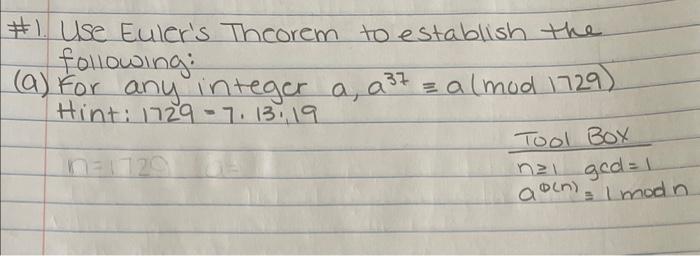 #1. Use Euler's Theorem to establish the
following:
(a) For any integer a, a³⁷ ≡ a (mod 1729)
Hint: 1729 = 7 · 13 · 19
Tool Box
n≥1 gcd=1
a^Φ(n) ≡ 1 mod n
n=1729 a=